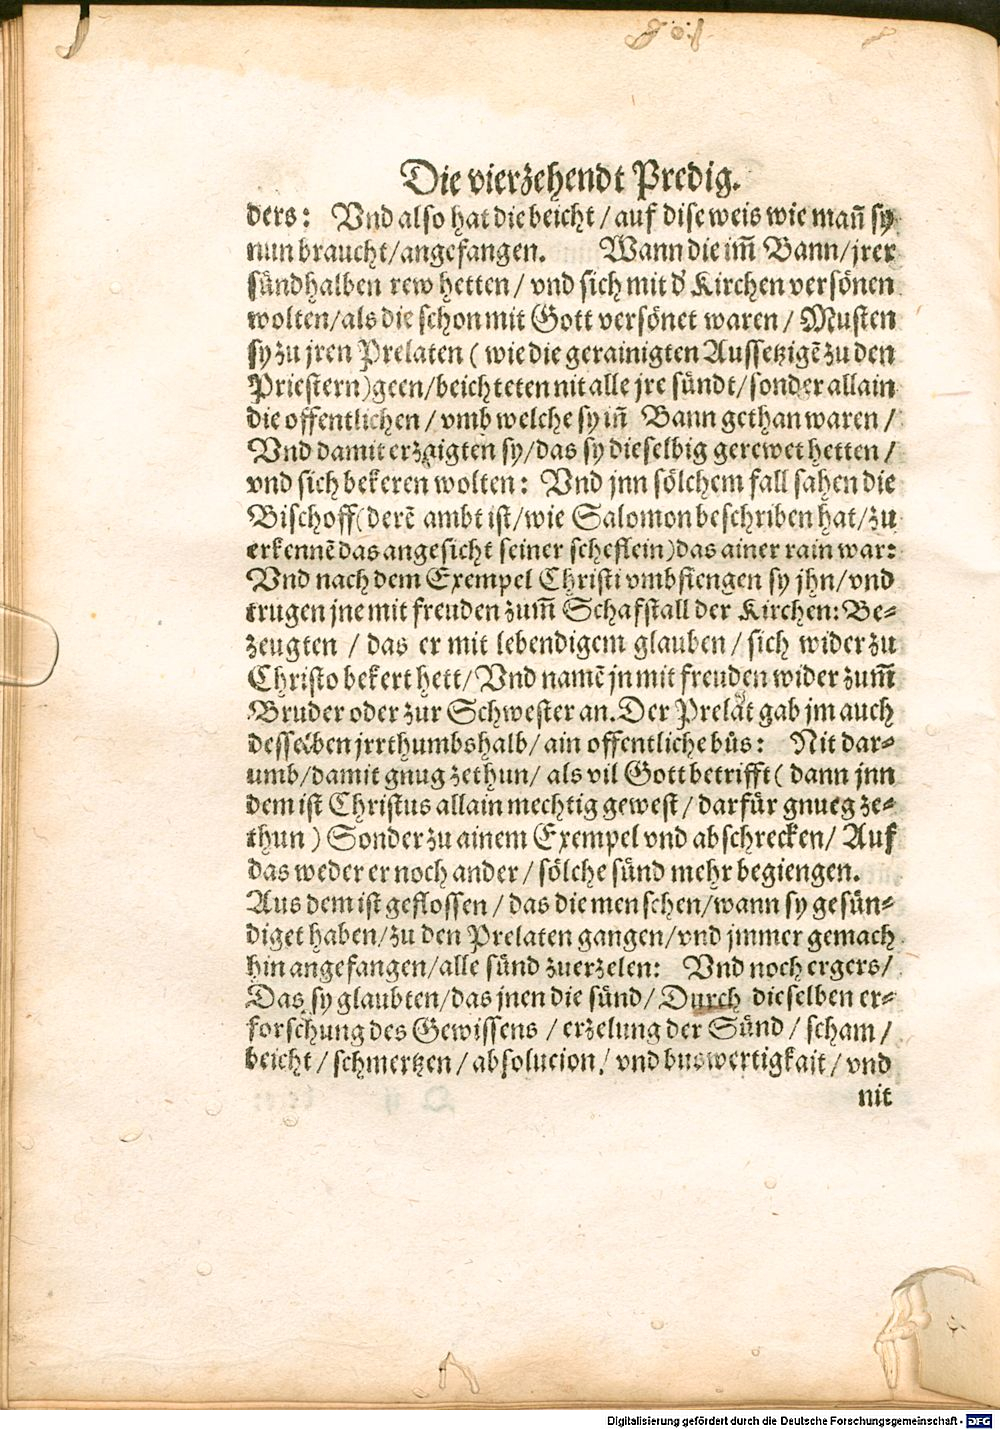 Die vierzehendt Predig.
ders: Vnd also hat die beicht / auf dise weis wie mañ sy
nun braucht/angefangen. Wann die im̃ Bann/jrer
sündhalben rew hetten / vnd sich mit d' Kirchen versönen
wolten/als die schon mit Gott versönet waren / Musten
sy zu jren Prelaten ( wie die gerainigten Aussetzigẽ zu den
Priestern)geen/beichteten nit alle jre sündt/sonder allain
die offentlichen / vmb welche sy iñ Bann gethan waren /
Vnd damit erzaigten sy/das sy dieselbig gerewet hetten /
vnd sich bekeren wolten: Vnd jnn sölchem fall sahen die
Bischoff(derẽ ambt ist/wie Salomon beschriben hat/zu
erkennẽ das angesicht seiner scheflein)das ainer rain war:
Vnd nach dem Exempel Christi vmbfiengen sy jhn/vnd
trugen jne mit freuden zum̃ Schafstall der Kirchen: Be⸗
zeugten / das er mit lebendigem glauben / sich wider zu
Christo bekert hett/Vnd namẽ jn mit freuden wider zum̃
Bruder oder zur Schwester an. Der Prelat gab jm auch
desselben jrrthumbshalb/ ain offentliche bůs: Nit dar⸗
umb/damit gnug zethun/ als vil Gott betrifft ( dann jnn
dem ist Christus allain mechtig gewest/ darfür gnueg ze⸗
thun ) Sonder zu ainem Exempel vnd abschrecken/ Auf
das weder er noch ander / sölche sünd mehr begiengen.
Aus dem ist geflossen / das die menschen/wann sy gesün⸗
diget haben/zu den Prelaten gangen/vnd jmmer gemach
hin angefangen/alle sünd zuerzelen: Vnd noch ergers/
Das sy glaubten/das jnen die sünd/ Durch dieselben er⸗
forschung des Gewissens / erzelung der Sünd / scham /
beicht / schmertzen / absolucion / vnd buswertigkait / vnd
nit
Digitalisierung gefördert durch die Deutsche Forschungsgemeinschaft - DFG